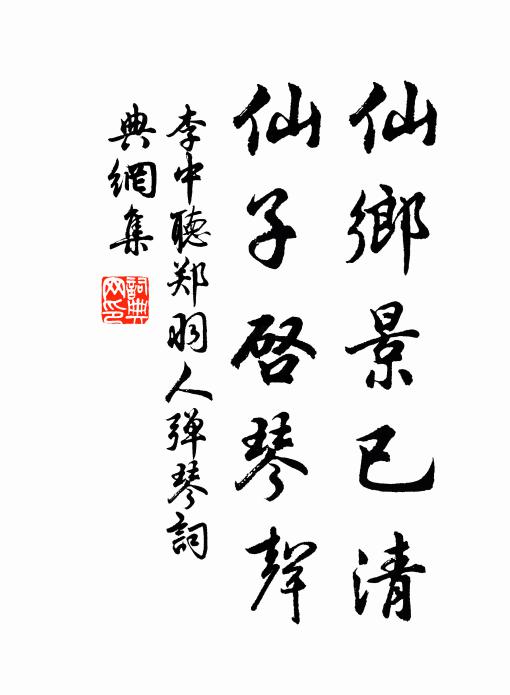 仙鄉景已清
仙子啓琴聲
李中聽郑羽人弹琴詞
典網集
詞典
网印